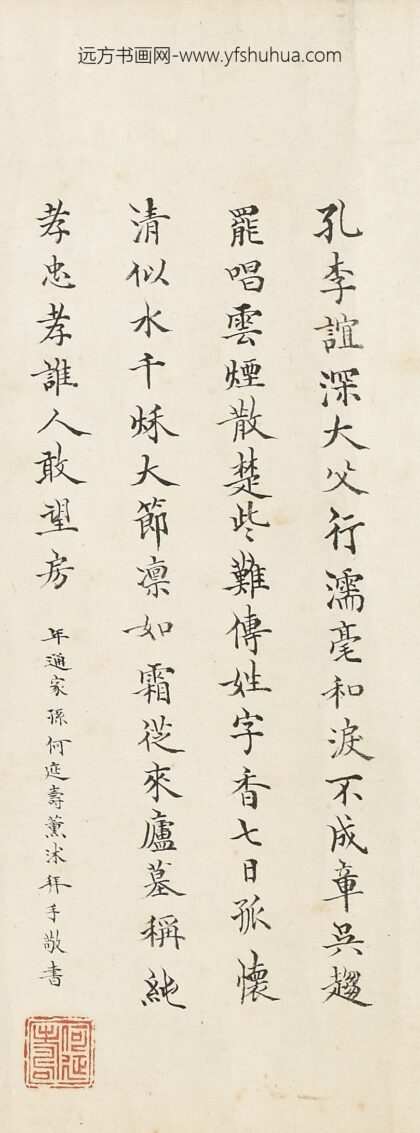 远方书画网-www.yfshuhua.com
孔李誼深大父行濡毫和淚不成章吳趨
罷唱雲煙散楚些難傳姓字香七日孤懷
清似水千秌大節凛如霜從來廬墓稱純
孝忠孝誰人敢望房
年通家孫何延壽薰沐拜手敬書
何延壽印